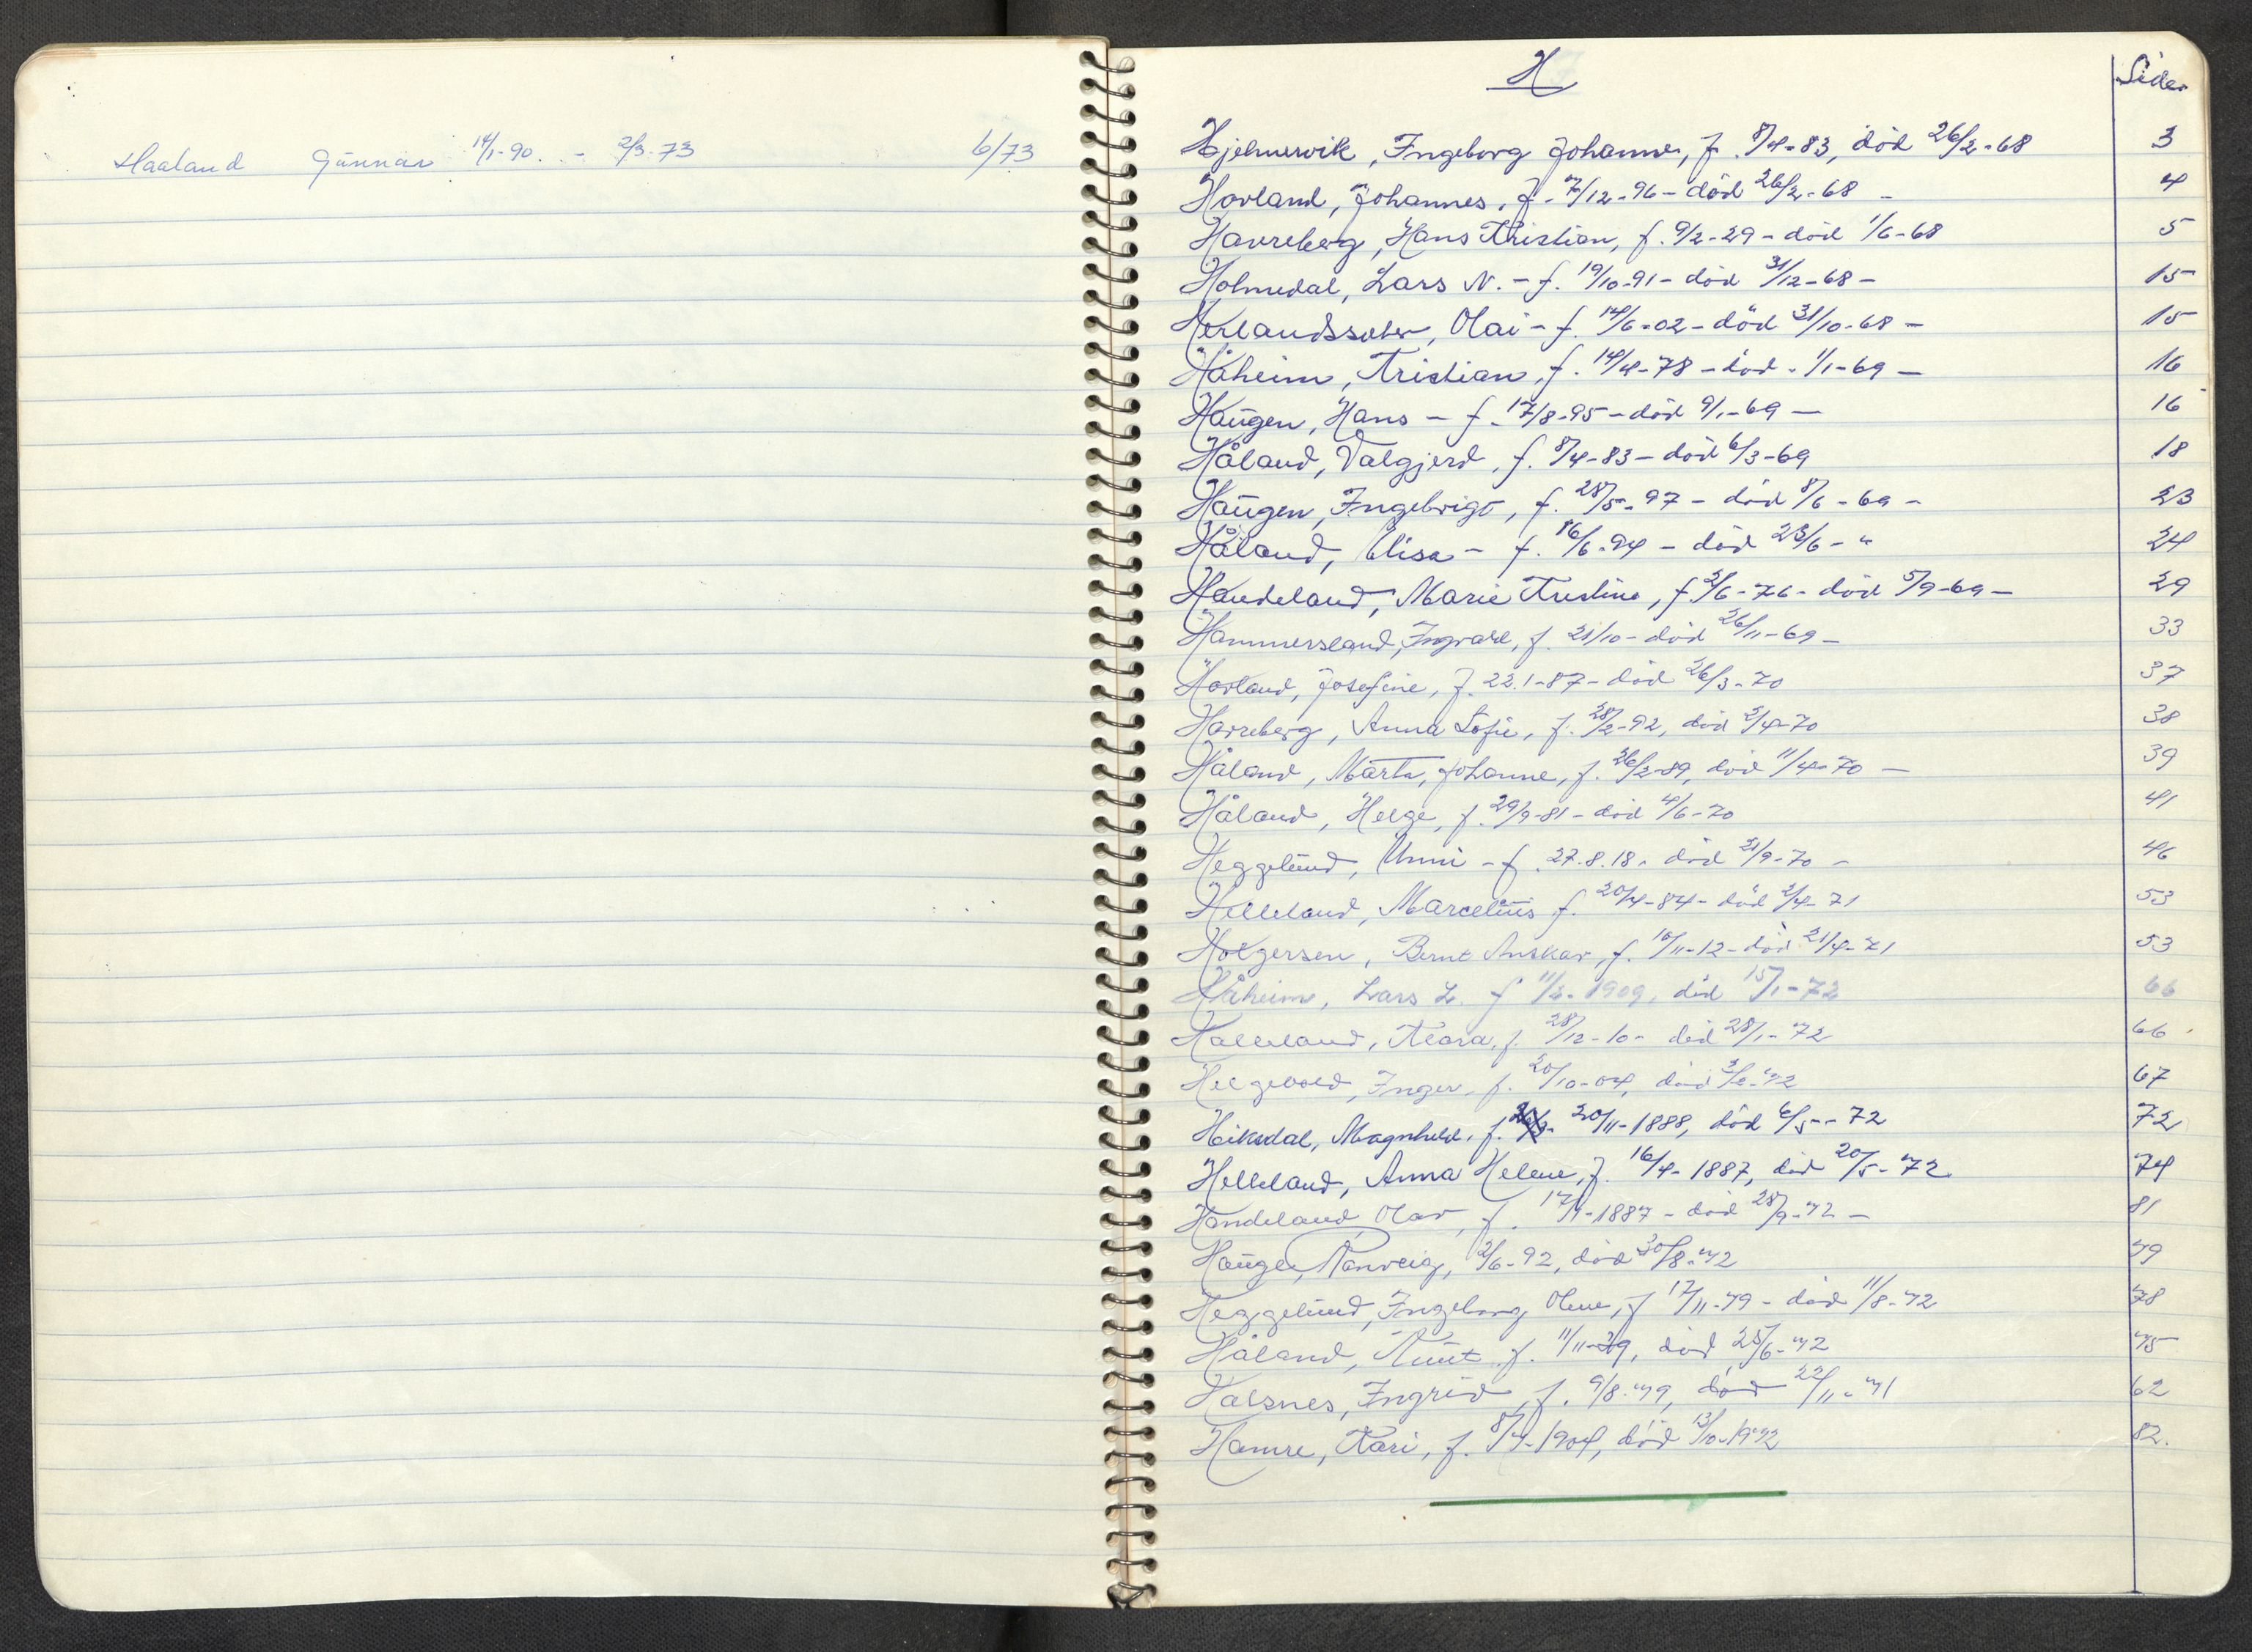 Haaland Gunnar 14/1-90. - 2/3-73 6/73
H
Sider
Hjelmervik, Ingeborg Johanne, f. 8/4-83, död 26/2-68 3
Hovland, Johannes, f. 7/12-96 - död 26/2-68 - 4
Havreberg, Hans Kristian, f. 9/2-29 - död 1/6-68 5
Holmedal, Lars N. - f. 19/10-91 - död 31/12-68 - 15
Olai - f. 14/6-02 - död 31/10-68 - 15
Håheim, Kristian, f. 14/4-78 - död - 1/1-69 - 16
Haugen, Hans - f. 17/8-95 - död 9/1-69 - 16
Håland, Valgjerd, f. 8/4-83 - död 6/3-69 18
Haugen, Ingebrigt, f. 28/5-97 - död 8/6-69 - 23
Håland, Elisa - f. 16/6-94 - död 23/6 - " 24
Handeland, Marie Kristine, f. 2/6-76 - död 5/9-69 - 29
Hammersland, Ingvald, f. 21/10 - död 26/11-69 - 33
Hovland, Josefine, f. 22.1-87 - död 26/3-70 37
Havreberg, Anna Sofie, f. 28/2-92, död 2/4-70 38
Håland, Marta, Johanne, f. 26/2-89, död 11/4-70 - 39
Håland, Helge, f. 29/9-81 - död 4/6-70 41
Heggelund, Unni - f. 27.8.18. död 21/9-70 - 46
Helleland, Marcelius f. 20/4-84 - död 2/4-71 53
Holgersen, Bernt Anskar, f. 10/11-12 - död 21/4-71 53
Håheim, Lars L. f 11/2-1909, död 15/1-72 66
Halleland, Klara, f. 28/12-10 - död 28/1-72 66
Helgevold, Inger, f. 20/10-04, död 3/2-72 67
Hiksdal, Magnhild, f. 20/11-1888, död 6/5--72 72
Helleland, Anna Helene, f. 16/4-1887, död 20/5-72 74
Handeland, Olav, f. 17/7-1887 - död 28/9-72 - 81
Hauge, Ranveig, 2/6-92, död 30/8-72 79
Heggelund, Ingeborg Oline, f 17/11-79 - död 11/8-72 78
Håland, Knut f. 11/11-29, död 25/6-72 75
Halsnes, Ingrid, f. 9/8-79, död 22/11-71 62
Hamre, Kari, f. 8/7-1904, död 13/10-1972 82.